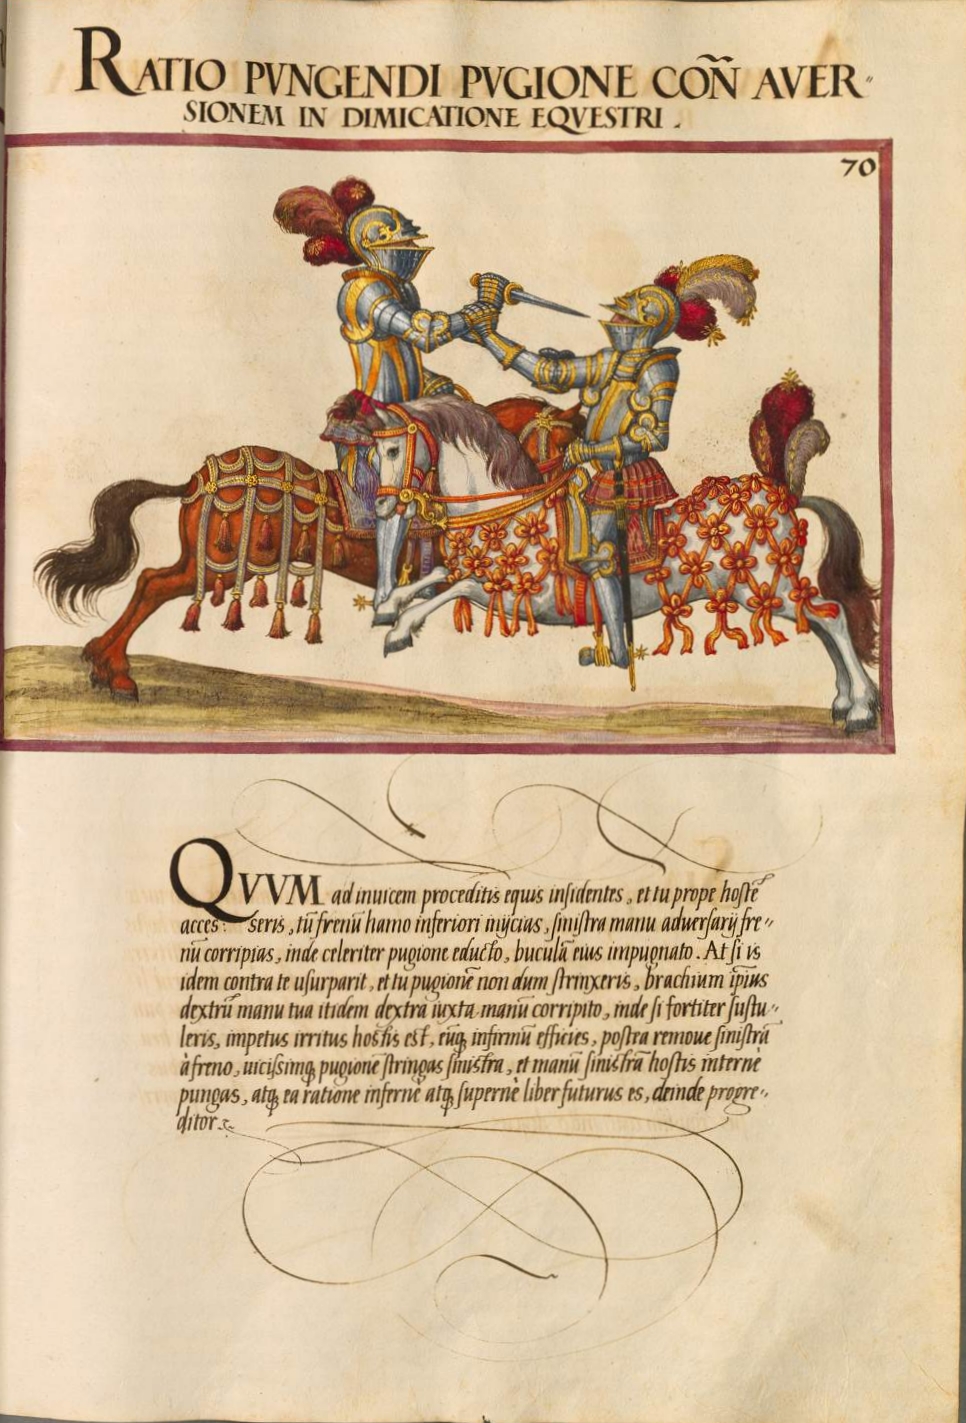 RATIO PVNGENDI PVGIONE COÑ AVER"
SIONEM IN DIMICATIONE EQVESTRI.
70
QVVM ad inuicem proceditis equis insidentes, et tu prope hostē
acces: seris, tū frenū hamo inferiori inijcias, sinistra manu aduersarij fre"
nū corripias, inde celeriter pugione educto, buculā eius impugnato. At si is
idem contra te usurparit, et tu pugionē non dum strinxeris, brachium ip̄ius
dextrū manu tua itidem dextra iuxta manū corripito, inde si fortiter sustu"
leris, impetus irritus hostis est, eūq; infirmū efficies, postea remoue sinistrā
à freno, uicissimq; pugionē stringas sinistra, et manū sinistrā hostis internè
pungas, atq; ea ratione infernè atq; supernè liber futurus es, deinde progre"
ditor.